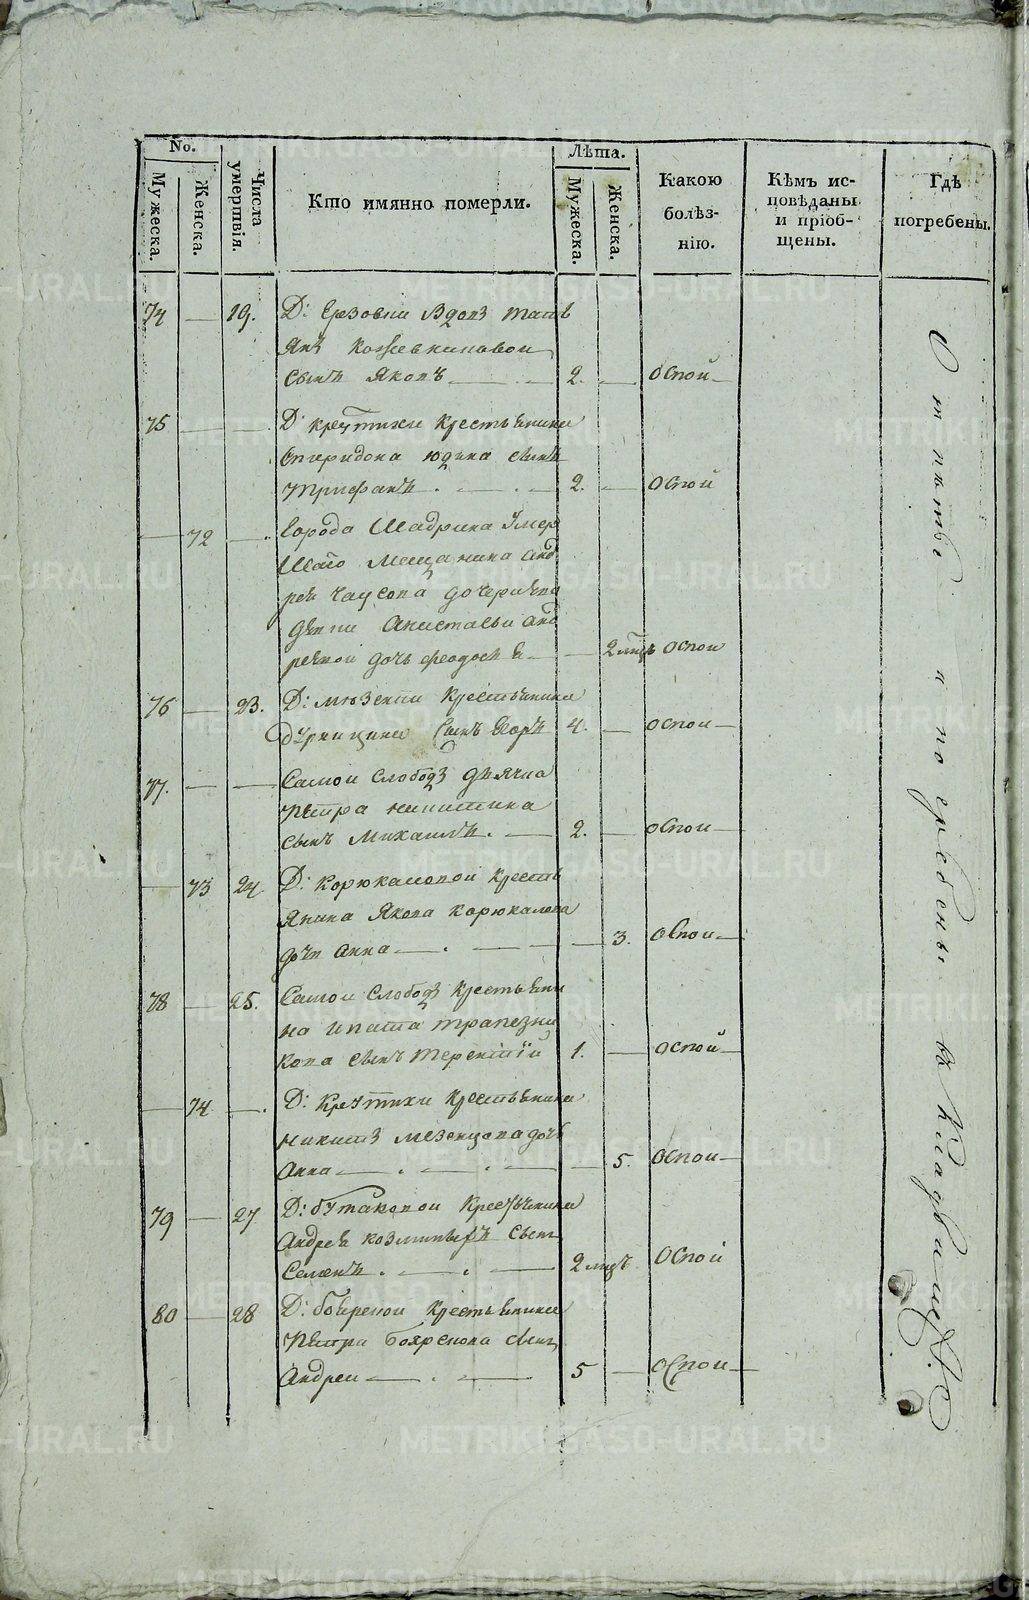 No.
Мужеска.
Женска.
Числа умертвія.
Кто имянно померли.
Лѣта.
Мужеска.
Женска.
Какою болѣз-
нію.
Кѣмъ ис-
повѣданы
и пріоб-
щены.
Гдѣ
погребены.
74 — 19. Д:
сынъ Яковъ — 2. — оспой
75 — — Д. крутихи крестьянина
Спиридона Юдина сынъ
Трифанъ . — . — 2. — оспой
— 72 — Города Шадрина умер
шаго мещанина анд
рея чаусова дочери
Анистасьи анд
рѣвной дочь феодосья — — 2 мцъ оспой
76 — 23. Д: крестьянина
сынъ Егоръ 4. — оспой
77. — — Самой слободы дьячка
Петра никитина
сынъ Михаилъ. — 2. — оспой
— 73 24. Д: корюкаловой кресть
янина Якова корюкалова
дочь анна — . — — — 3. оспой
78 — 25. Самой слободы крестьяни
на ипата трапезни
кова сынъ терентій 1. — оспой
— 74 — . Д: крутихи крестьянина
никиты мезенцова дочь
Анна — . — . — — 5. оспой
79 — 27 Д: бутаковой крестьянина
Андрея козминыхъ сынъ
Семенъ . — . — 2 мцъ. оспой
80 — 28 Д: бояреной крестьянина
Петра Бояренова сынъ
Андрей — . — 5 — оспой
Отпѣты и погребены в кладбищѣ.
METRIKI.GASO-URAL.RU